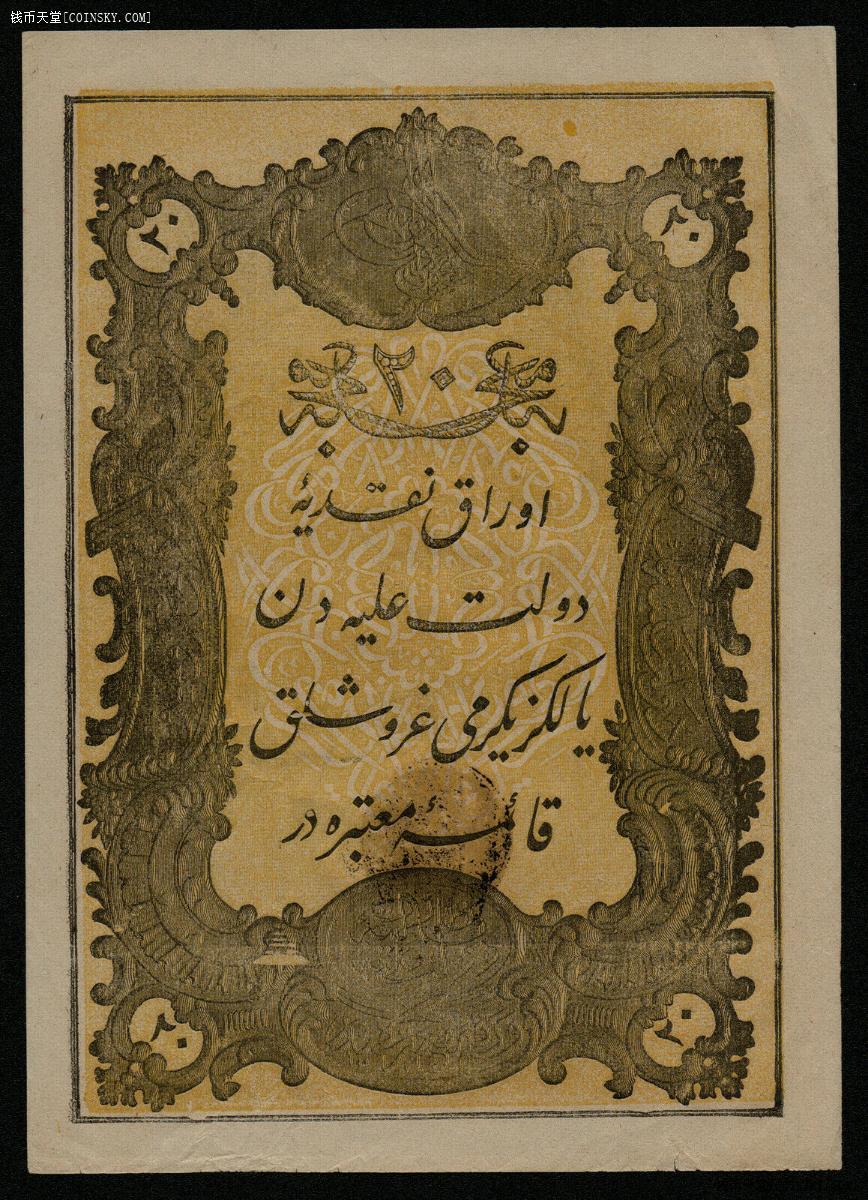 钱币天堂[COINSKY.COM]
٢٠ ٢٠
٢٠
اوراق نقدیهٔ
دولت علیه دن
یالکز یکرمی غروشلق
قائمهٔ معتبره در
٢٠ ٢٠